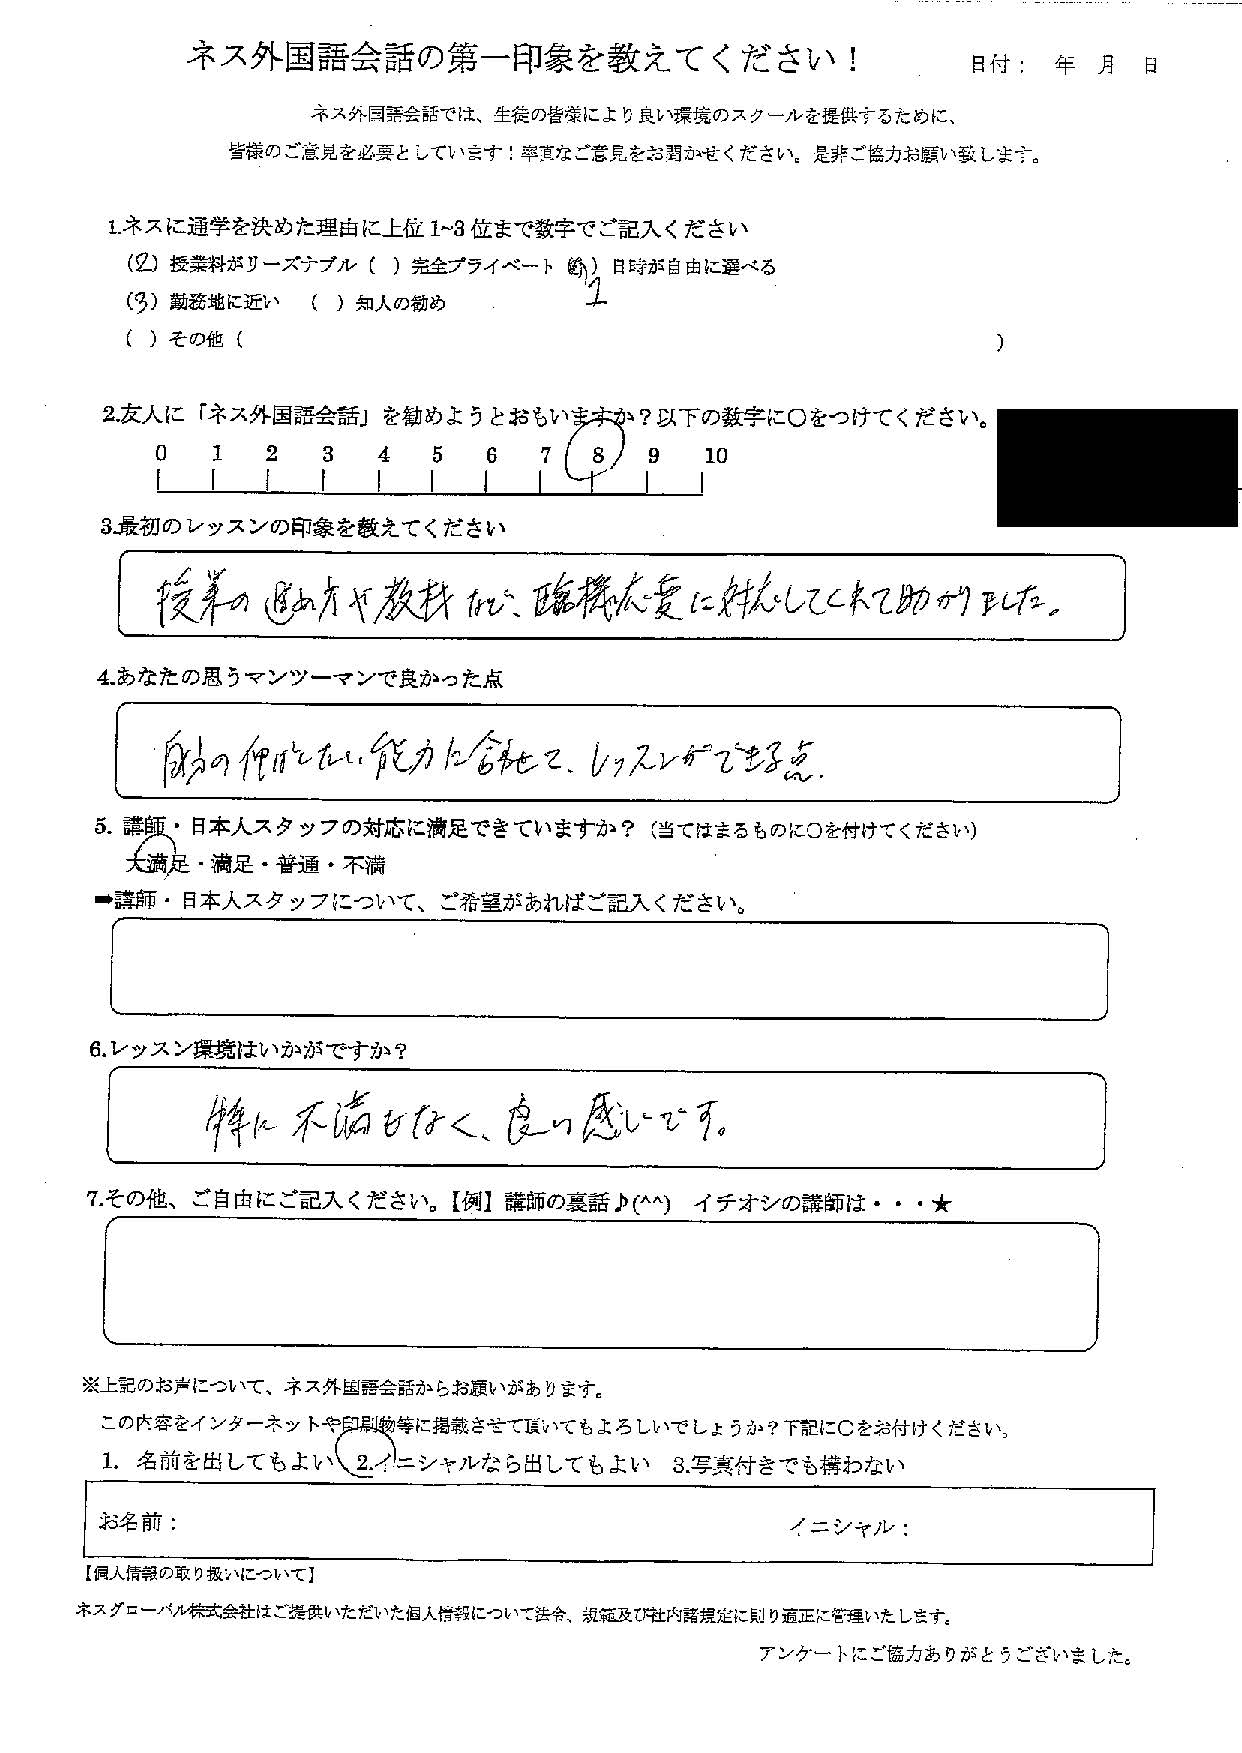 ネス外国語会話の第一印象を教えてください！
日付： 年 月 日
ネス外国語会話では、生徒の皆様により良い環境のスクールを提供するために、
皆様のご意見を必要としています！率直なご意見をお聞かせください。是非ご協力お願い致します。
1.ネスに通学を決めた理由に上位1~3位まで数字でご記入ください
（2）授業料がリーズナブル（ ）完全プライベート（ ）日時が自由に選べる
1
（3）勤務地に近い （ ）知人の勧め
（ ）その他（ ）
2.友人に「ネス外国語会話」を勧めようとおもいますか？以下の数字に〇をつけてください。
0 1 2 3 4 5 6 7 8 9 10
3.最初のレッスンの印象を教えてください
授業の進め方や教材など、臨機応変に対応してくれて助かりました。
4.あなたの思うマンツーマンで良かった点
自分の伸ばしたい能力に合わせて、レッスンができる点。
5. 講師・日本人スタッフの対応に満足できていますか？（当てはまるものに〇を付けてください）
大満足・満足・普通・不満
➡講師・日本人スタッフについて、ご希望があればご記入ください。
6.レッスン環境はいかがですか？
特に不満もなく、良い感じです。
7.その他、ご自由にご記入ください。【例】講師の裏話♪(^^) イチオシの講師は・・・★
※上記のお声について、ネス外国語会話からお願いがあります。
この内容をインターネットや印刷物等に掲載させて頂いてもよろしいでしょうか？下記に〇をお付けください。
1. 名前を出してもよい 2.イニシャルなら出してもよい 3.写真付きでも構わない
お名前： イニシャル：
【個人情報の取り扱いについて】
ネスグローバル株式会社はご提供いただいた個人情報について法令、規範及び社内諸規定に則り適正に管理いたします。
アンケートにご協力ありがとうございました。